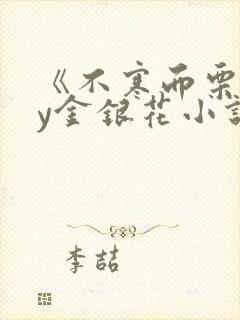 《不寒而栗
y金银花小说
李喆